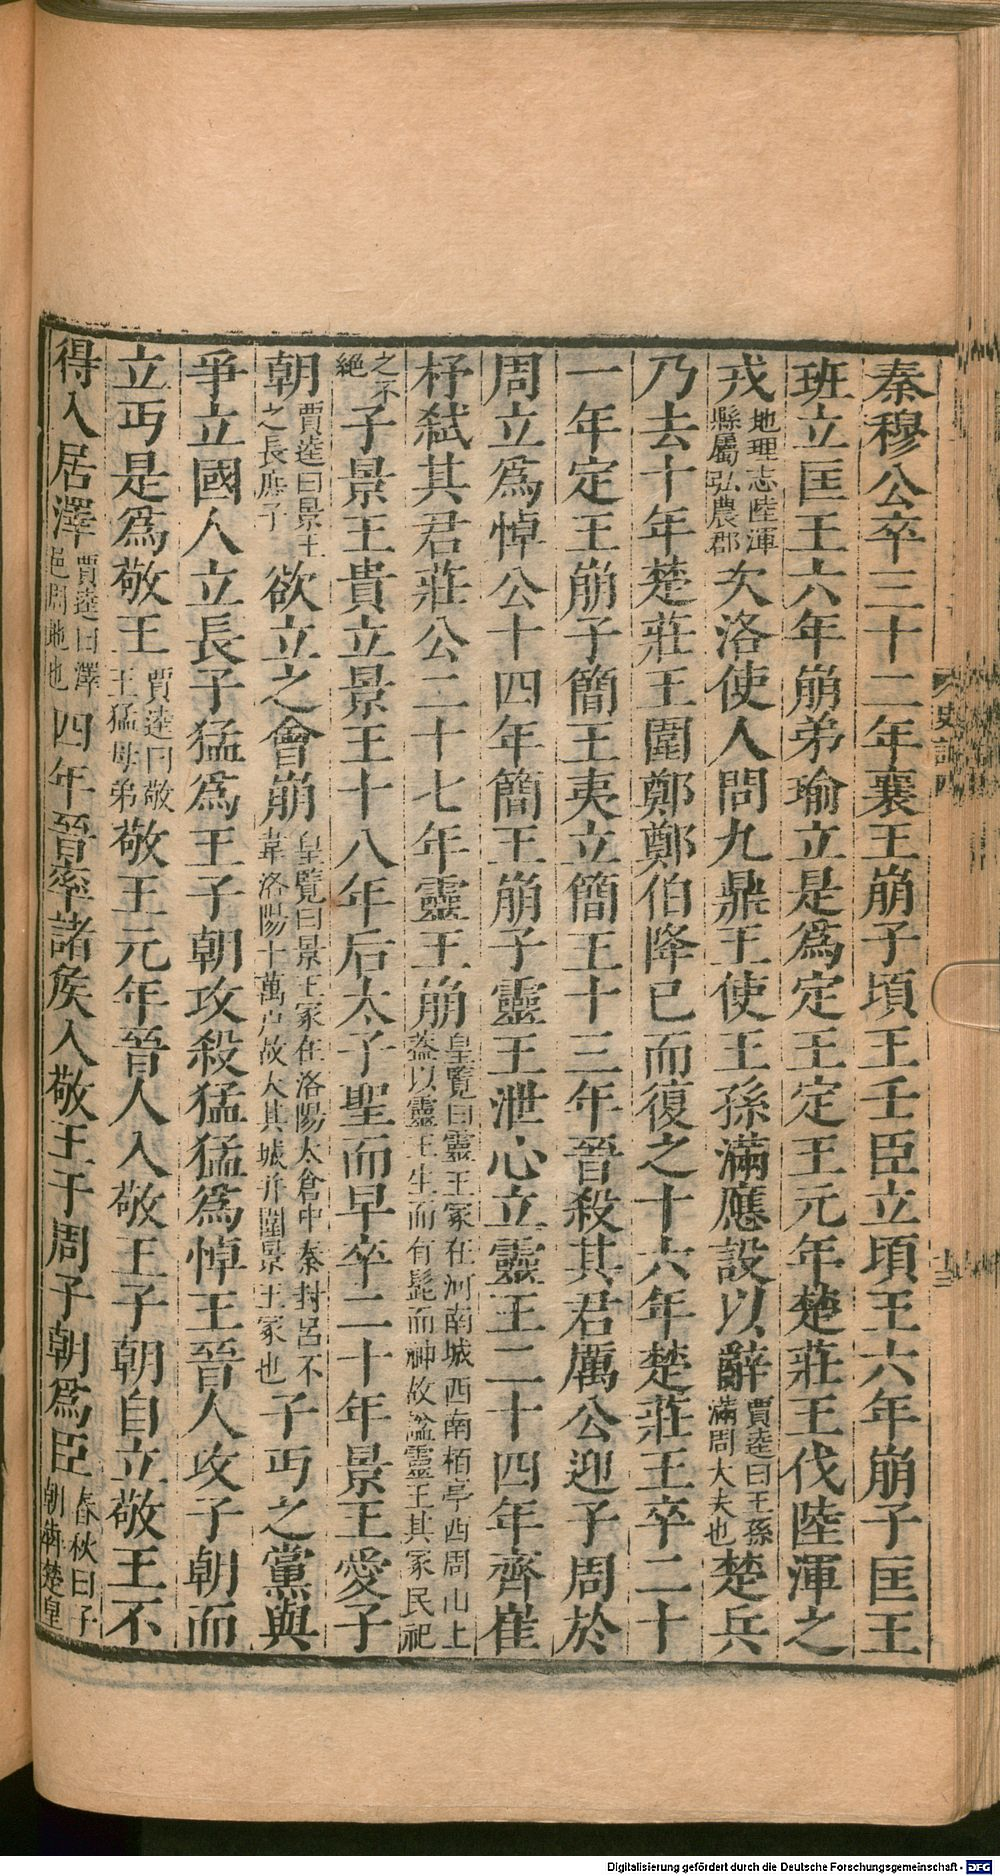 秦穆公卒三十二年襄王崩子頃王壬臣立頃王六年崩子匡王
班立匡王六年崩弟瑜立是爲定王定王元年楚莊王伐陸渾之
戎地理志陸渾縣屬弘農郡次洛使人問九鼎王使王孫滿應設以辭賈逵曰王孫滿周大夫也楚兵
乃去十年楚莊王圍鄭鄭伯降已而復之十六年楚莊王卒二十
一年定王崩子簡王夷立簡王十三年晉殺其君厲公迎子周於
周立爲悼公十四年簡王崩子靈王泄心立靈王二十四年齊崔
杼弑其君莊公二十七年靈王崩皇覽曰靈王冢在河南城西南栢亭西周山上葢以靈王生而有髭而神故諡靈王其冢民祀
之不絶子景王貴立景王十八年后太子聖而早卒二十年景王愛子
朝賈逵曰景王之長庶子欲立之會崩皇覽曰景王冢在洛陽太倉中秦封呂不韋洛陽十萬户故大其城并圍景王冢也子丐之黨與
爭立國人立長子猛爲王子朝攻殺猛猛爲悼王晉人攻子朝而
立丐是爲敬王賈逵曰敬王猛母弟敬王元年晉人入敬王子朝自立敬王不
得入居澤賈逵曰澤邑周地也四年晉率諸矦入敬王于周子朝爲臣春秋曰子朝犇楚皇
史記四
十三
Digitalisierung gefördert durch die Deutsche Forschungsgemeinschaft - DFG